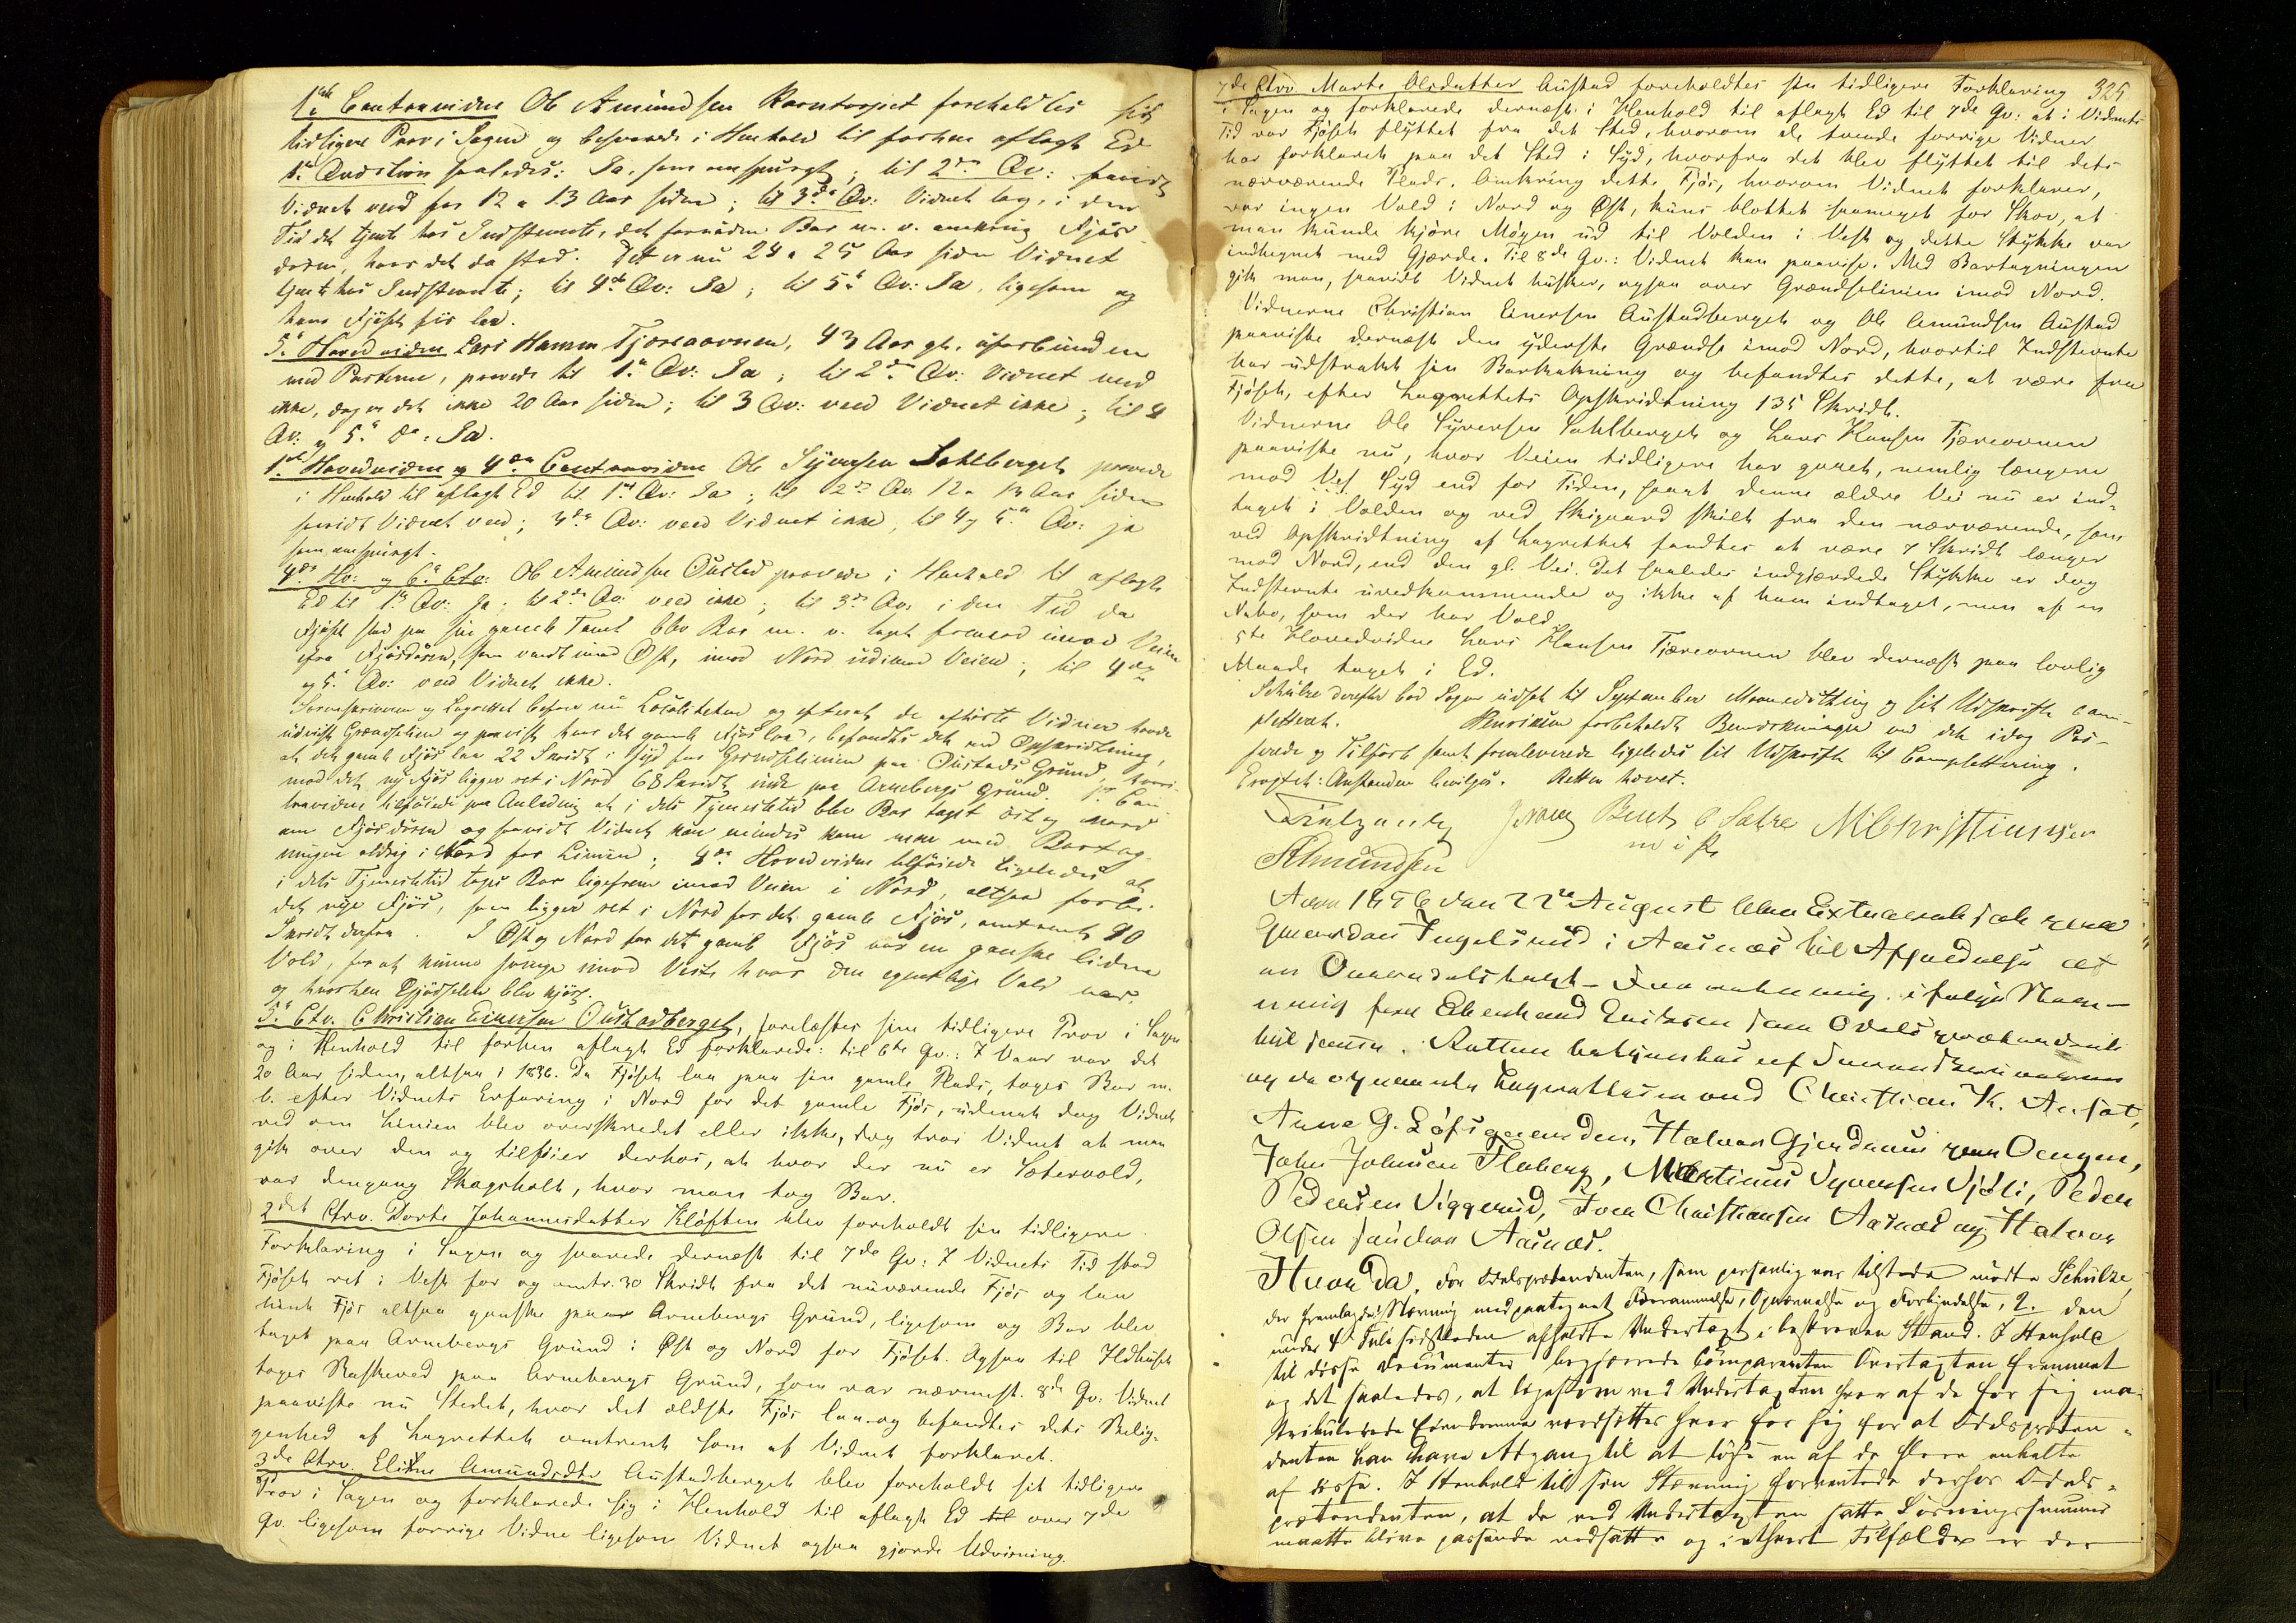 1ste Contravidne Ole Amundsen Karntorpet foreholdtes sit
tidligere Prov i Sagen og besvarede i Henhold til forhen aflagt Ed
1ste Qvæstion saaledes: Ja, som omspurgt; til 2den Qv: saavidt
Vidnet veed for 12 a 13 Aar siden; til 3die Qv: Vidnet tog, i den
Tid det tjente hos Indstevnte, det fornødne Bar m. v. omkring Fjøs-
døren, hvor det da stod. Det er nu 24 a 25 Aar siden Vidnet
tjente hos Indstevnte; til 4de Qv: Ja; til 5te Qv: Ja, ligesom og
hvor Fjøset før laa.
5te Hovedvidne Lars Hansen Tjæreovnen, 43 Aar gl. uforbunden
med Parterne, provede til 1ste Qv: Ja; til 2den Qv: Vidnet veed
ikke, dog er det ikke 20 Aar siden; til 3 Qv: veed Vidnet ikke; til 4
Qv: og 5te do: Ja.
1ste Hovedvidne og 4de Contravidne Ole Syversen Sohlberget provede
i Henhold til aflagt Ed til 1ste Qv: Ja; til 2den Qv: 12 a 14 Aar siden
saavidt Vidnet veed; 3die Qv: veed Vidnet ikke, til 4 og 5te Qv: ja
som omspurgt.
4de Hv: og 6te Ctv: Ole Amundsen Oustad provede i Henhold til aflagt
Ed til 1ste Qv: Ja; til 2den Qv: veed ikke; til 3die Qv: i den Tid da
Fjøset stod paa sin gamle Tomt blev Bar m. v. taget fremad imod Veien
fra Fjøsdøren, som vendt imod Øst, imod Nord udimod Veien; til 4de
og 5te Qv: veed Vidnet ikke.
Sorenskriveren og Lagrettet besaae nu Localiteten og efterat de afhørte Vidner havde
udviist Grændselinien og paaviist hvor det gamle Fjøs laa, befandtes det ved Opskridtning,
at det gamle Fjøs laa 22 Skridt i Syd for Grændselinien paa Oustads Grund, hvori-
mod det nye Fjøs ligger ret i Nord 68 Skridt inde paa Arnebergs Grund. 1ste Con-
travidne tilføiede paa Anledning at i dets Tjenestetid blev Bar taget øst og nord
om Fjøsdøren og saavidt Vidnet kan mindes kom man med Bartag-
ningen aldrig i Nord for Linien; 4de Hovedvidne tilføiede ligeledes at
i dets Tjenestetid toges Bar ligefrem imod Veien i Nord, altsaa forbi
det nye Fjøs, som ligger ret i Nord for det gamle Fjøs, omtrent 90
Skridt derfra. I Øst og Nord for det gamle Fjøs var en ganske liden
Vold, for at kunne svinge imod Vest hvor den egentlige Vold var,
og hvorhen Gjødselen blev kjørt.
5te Ctv. Christian Einersen Oustadberget, forelæstes sin tidligere Prov i Sagen
og i Henhold til forhen aflagt Ed forklarede: til 6te Qv.: I Vaar var det
20 Aar siden, altsaa i 1836. Da Fjøset laa paa sin gamle Plads, toges Bar m.
v. efter Vidnets Erfaring i Nord for det gamle Fjøs, uden at dog Vidnet
ved om Linien blev overskredet eller ikke, dog tror Vidnet at man
gik over den og tilføier derhos, at hvor der nu er Sætervold,
var dengang Skogsholt, hvor man tog Bar.
2det Ctrv. Dorte Johannesdatter Kløften blev foreholdt sin tidligere
Forklaring i Sagen og svarede dernæst til 7de Qv: I Vidnets Tid stod
Fjøset ret i Vest for og omtr. 30 Skridt fra det nuværende Fjøs og laa
hint Fjøs altsaa ganske paa Arnebergs Grund, ligesom og Bar blev
taget paa Arnebergs Grund i Øst og Nord for Fjøset. Ogsaa til Ildhuset
toges Raskeved paa Arnebergs Grund, som var nærmest. 8de Qv: Vidnet
paaviste nu Stedet, hvor det ældste Fjøs laa og befandtes dets Belig-
genhed af Lagrettet omtrent som af Vidnet forklaret.
3de Ctrv. Eline Amundsdtr Austadberget blev foreholdt sit tidligere
Prov i Sagen og forklarede sig i Henhold til aflagt Ed til over 7de
Qv. ligesom forrige Vidne ligesom Vidnet ogsaa gjorde Udvisning.
325
7de Ctrv. Marte Olsdatter Austad foreholdtes sin tidligere Forklaring
i Sagen og forklarede dernæst i Henhold til aflagt Ed til 7de Qv: at i Vidnets
Tid var Fjøset flyttet fra det Sted, hvorom de tvende forrige Vidner
har forklaret paa det Sted i Syd, hvorfra det blev flyttet til dets
nærværende Plads. Omkring dette Fjøs, hvorom Vidnet forklarer,
var ingen Vold i Nord og Øst, kuns blottet saameget for Skov, at
man kunde kjøre Møgen ud til Volden i Vest og dette Stykke var
indhegnet med Gjærde. Til 8de Qv.: Vidnet kan paavise. Med Bartagningen
gik man, saavidt Vidnet husker, ogsaa over Grændselinien imod Nord.
Vidnerne Christian Einersen Austadberget og Ole Amundsen Austad
paaviste dernæst den yderste Grændse imod Nord, hvortil Indstevnte
har udstrakt sin Barhakning og befandtes dette, at være fra
Fjøset, efter Lagrettets Opskridtning 135 Skridt.
Vidnerne Ole Syversen Sohlberget og Lars Hansen Tjæreovnen
paaviste nu, hvor Veien tidligere har gaaet, nemlig længere
mod Syd end for Tiden, samt denne ældre Vei nu er ind-
taget i Volden og ved Skigaard skilt fra den nærværende, som
ved Opskridtning af Lagrettet fandtes at være 7 Skridt længer
mod Nord, end den gl. Vei. Det saaledes indgjærdede Stykke er dog
Indstevnte uvedkommende og ikke af ham indtaget, men af en
Nabo, som der har Vold.
5te Hovedvidne Lars Hansen Tjæreovnen blev dernæst paa lovlig
Maade taget i Ed.
Schulze derefter bad Sagen udsat til September Maanedsthing og sit Udskrift com-
pletteret. forbeholdt Bemærkninger ved det idag Pas-
serede og Tilførte samt fremleverede ligeledes sit Udskrift til Complettering.
Eragtet: Anstanden bevilges. Retten hævet.
Bent Sætre M Christiansen
Amundsen
Aar 1856 den 22de August blev Extraret sat paa
Gaarden Ingelsrud i Aasnæs til Afholdelse af
en Overodelstagt-Forretning i følge Stæv-
ning fra Erik Eriksen som Odelsprætendent
til samme. Retten betjentes af Sorenskriveren
og de opnævnte Lagrettesmænd Christian K. Aaset,
Arne G. Løfsgaarden, Halvor Gjerdrum paa Oengen,
John Johnsen Floberg, Martinus Syversen Sjøli, Peder
Pedersen Viggerud, Iver Christiansen Aasnæs og Halvor
Olsen søndre Aasnæs.
Hvor da, for Odelsprætendenten, som personlig var tilstede mødte Schulze,
der fremlagde 1. Stævning med paategnet Berammelse, Opnævnelse og Forkyndelse, 2. den
under 4de Juli sidstleden afholdte Undertagt i beskreven Stand. I Henhold
til disse Documenter begjærede Comparenten Overtagten fremmet
og det saaledes, at ligesom ved Undertagten hver af de for sig ma-
trikulerede Eiendomme værdsættes hver for sig for at Odelspræten-
denten kan have Adgang til at løse en af de flere enkelte
af disse. I Henhold til sin Stævning forventede derhos Odels-
prætendenten, at de ved Undertagten satte Løsningssummer
maatte blive passende nedsatte og i ethvert Tilfælde er der